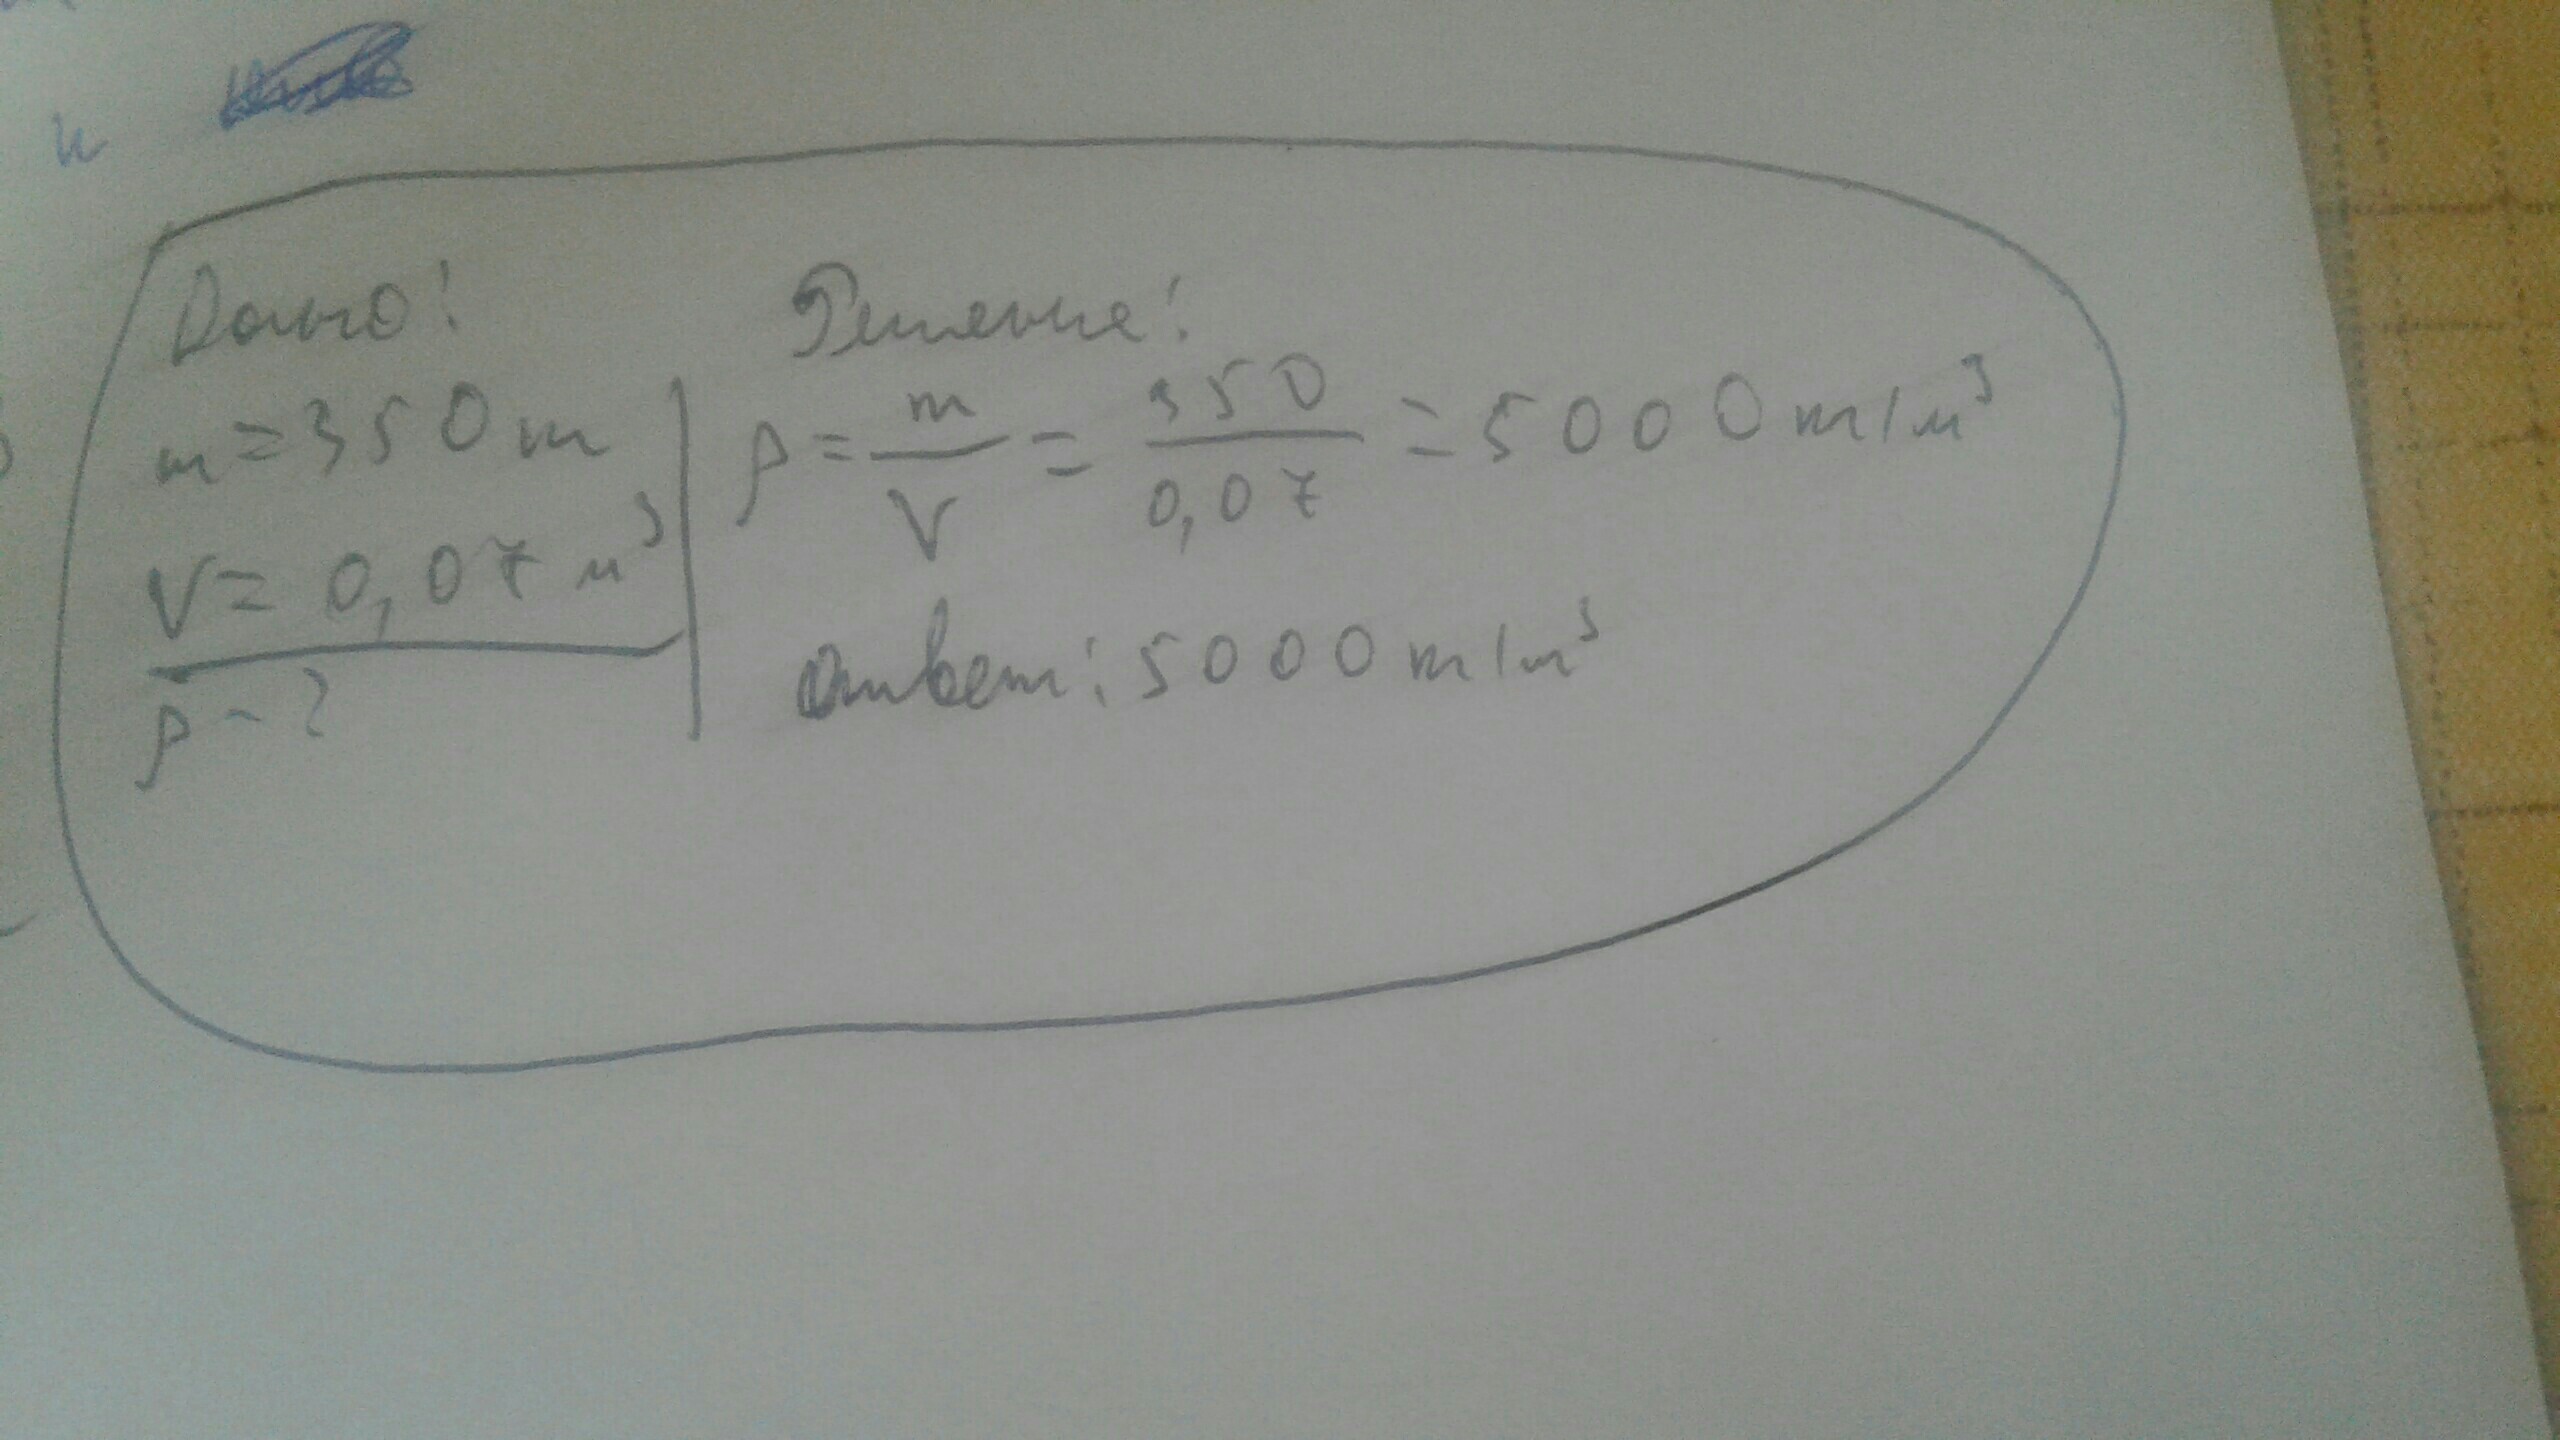 и
Дано:
m=350 т
V= 0,07 м³
ρ - ?
Решение:
ρ = m/V = 350/0,07 = 5000 т/м³
Ответ: 5000 т/м³